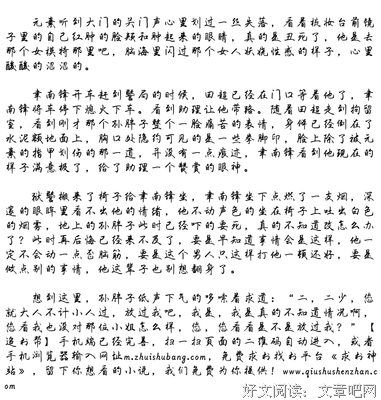 元素听到大门的关门声心里划过一丝失落，看着梳妆台前镜
子里的自己红肿的脸颊和肿起来的眼睛，真的是丑死了，他是去
那个女模特那里吧，脑海里闪过那个女人妖娆性感的样子，心里
酸酸的涩涩的。
聿南锋开车赶到警局的时候，田程已经在门口等着他了，聿
南锋将车停下熄火下车。看到助理让他带路。随着田程走到拘留
室，看到刚才那个孙胖子整个一脸痛苦的表情，身体已经倒在了
水泥颗地面上，胸口处隐约可见的是一些拳脚印，脸上除了被元
素的指甲划伤的那一道，并没有一点痕迹，聿南锋看到他现在的
样子满意极了，给了助理一个赞赏的眼神。
狱警搬来了椅子给聿南锋坐，聿南锋坐下点燃了一支烟，深
邃的眼眸里看不出他的情绪，他不动声色的坐在椅子上吐出白色
的烟雾，地上的孙胖子此时已经吓的要死，真的不知道改怎么办
了？此时再后悔已经来不及了，要是早知道事情会是这样，他一
定不会动一点歪脑筋，要是这个男人只这样打他一顿还好，要是
做点别的事情，他这辈子也别想翻身了。
想到这里，孙胖子低声下气的哆嗦着求道：“二，二少，您
就大人不计小人过，放过我吧，我是，我是真的不知道情况啊，
您看我也没对那位小姐怎么样，您，您看看是不是放过我？”【
追书帮】手机端已经完善，扫一扫页面的二维码自动进入，或者
手机浏览器输入网址m.zhuishubang.com，免费求书找书平台《求书神
站》，留下你想看的小说，我们免费为你提供！www.qiushushenzhan.c
om
好文阅读：文章吧网